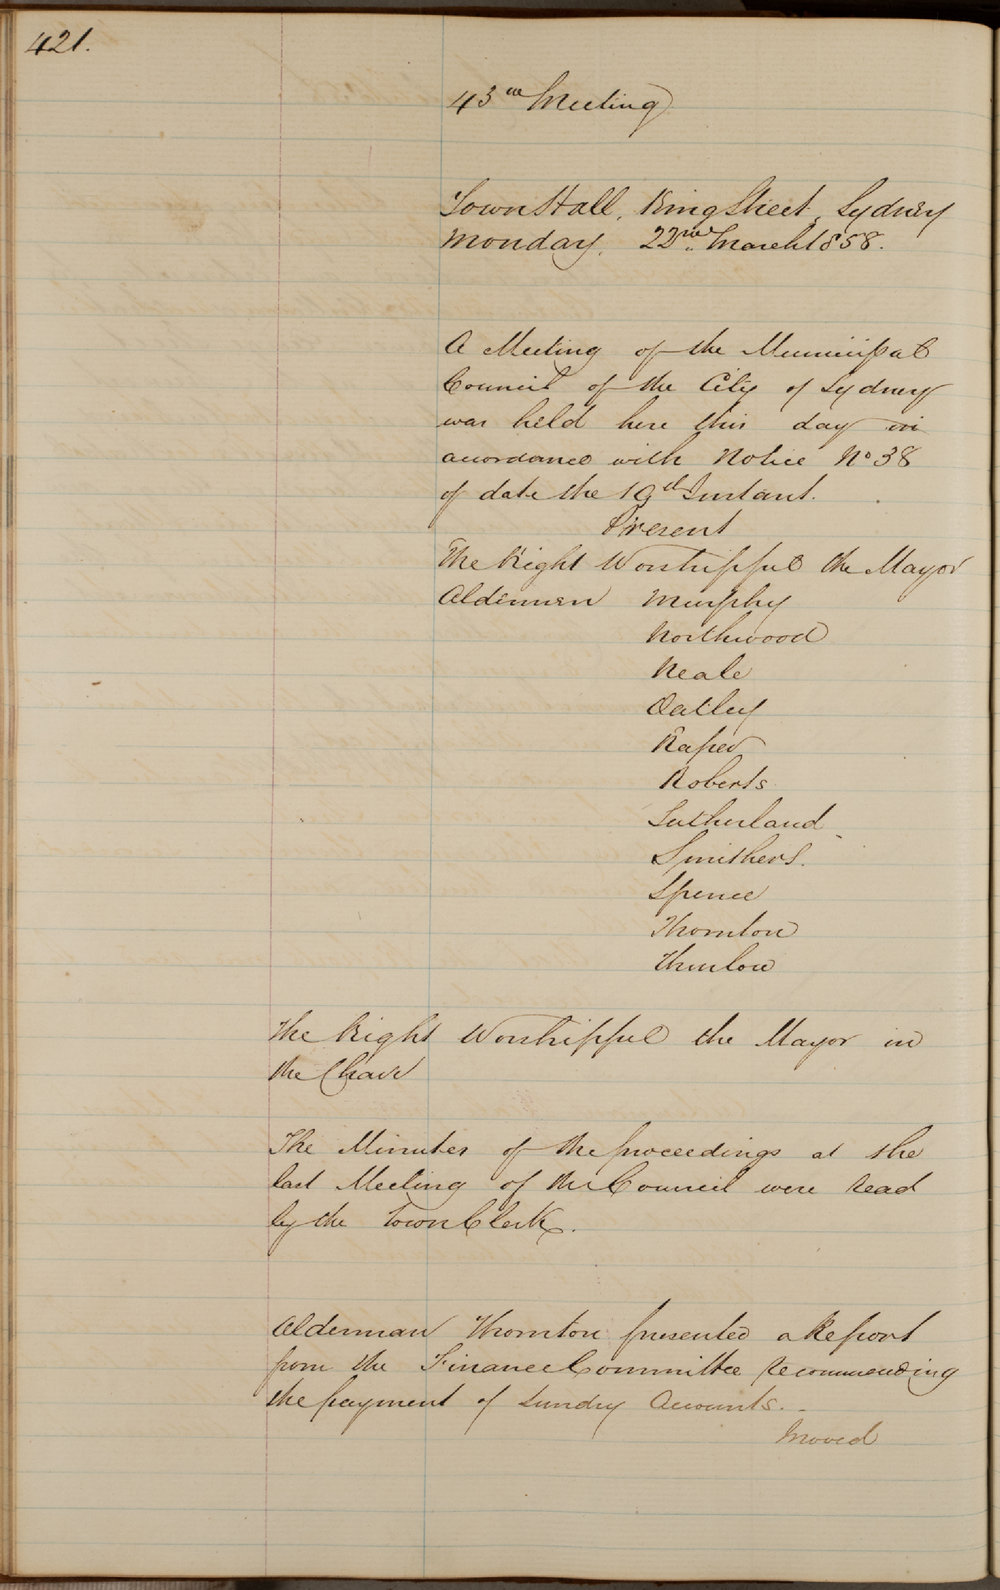 421.
43rd Meeting
Town Hall, King Street, Sydney
Monday, 22nd March 1858.
A Meeting of the Municipal
Council of the City of Sydney
was held here this day in
accordance with Notice No 38
of date the 19th Instant.
Present
The Right Worshipful the Mayor
Aldermen Murphy
Northwood
Neale
Oatley
Raper
Roberts
Sutherland
Smithers.
Spence
Thornton
Thurlow
The Right Worshipful the Mayor in
the Chair
The Minutes of the proceedings at the
last Meeting of the Council were read
by the Town Clerk.
Alderman Thornton presented a Report
from the Finance Committee recommending
the payment of sundry Accounts. -
Moved